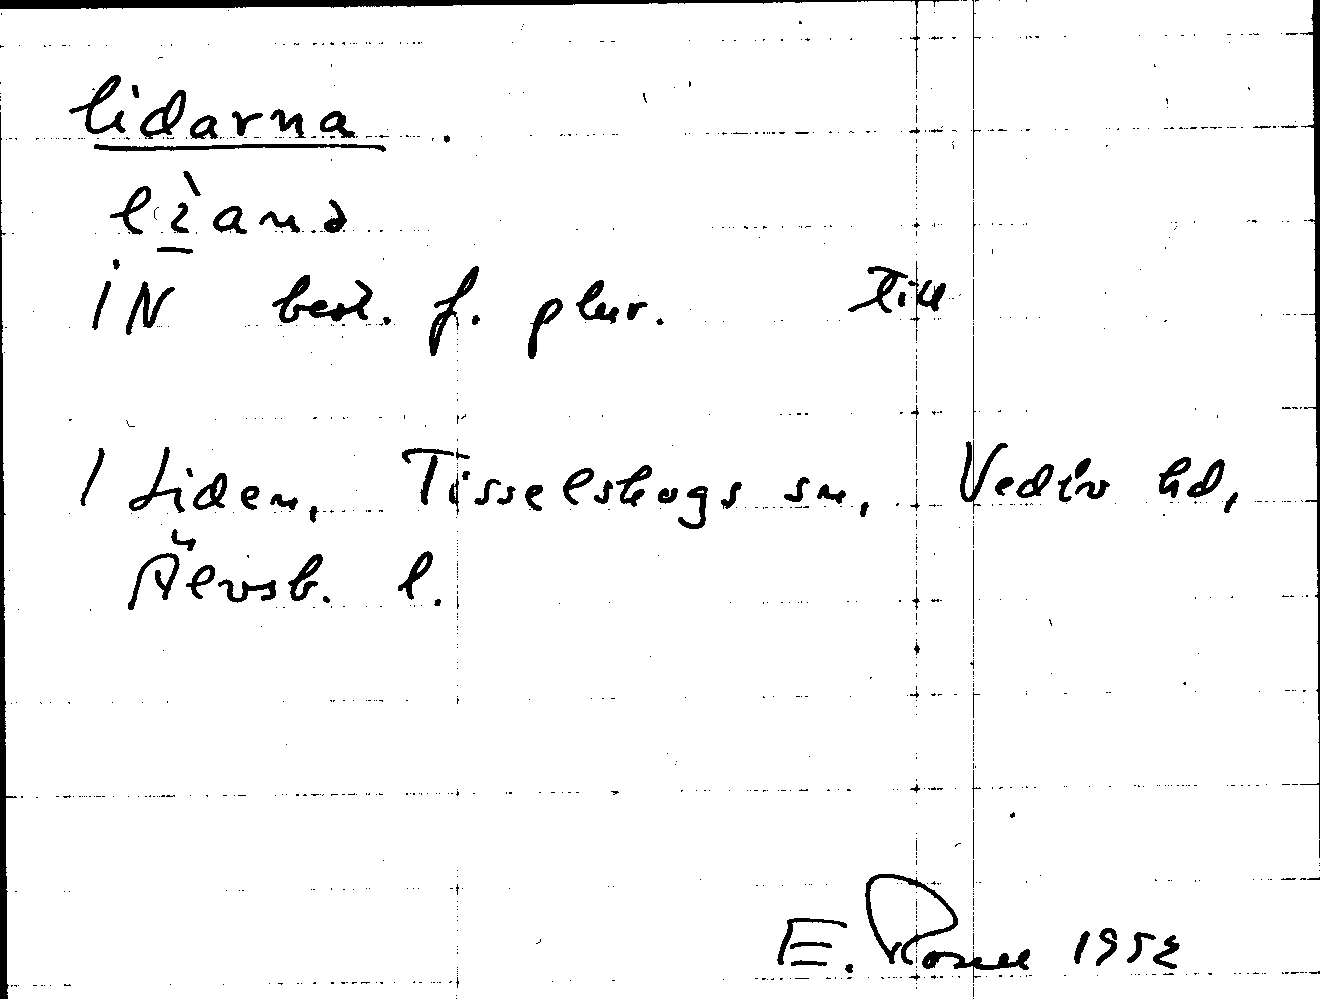 lidarna.
IN best. f. plur. till
1 Liden, Tisselskogs sn, Vedbo hd,
Älvsb. l.
E. Rosell 1952